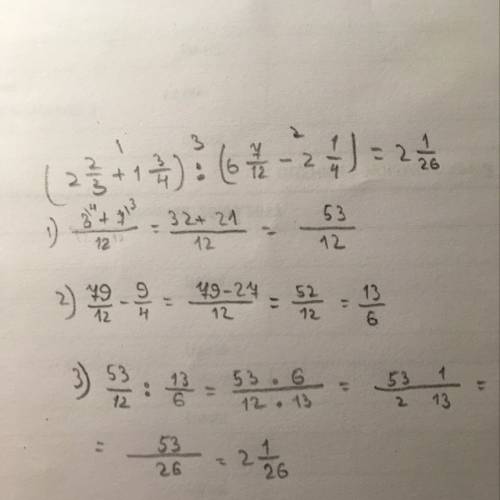 (2 2/3 + 1 3/4) : (6 7/12 - 2 1/4) = 2 1/26
1) = 32+21/12 = 53/12
2) 79/12 - 9/4 = 79-27/12 = 52/12 = 13/6
3) 53/12 : 13/6 = 53 · 6/12 · 13 = 53 1/2 13 =
= 53/26 = 2 1/26